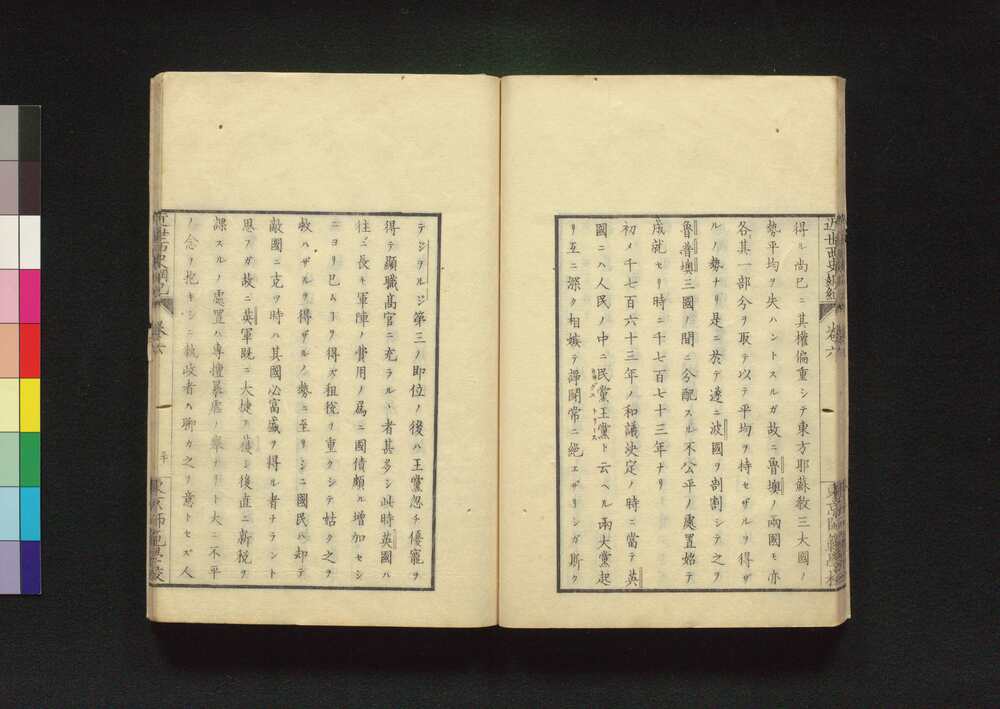 得ル尚已ニ其權偏重シテ東方耶蘇教三大國ノ
勢平均ヲ失ハントスルガ故ニ魯墺ノ兩國モ亦
各其一部分ヲ取テ以テ平均ヲ持セザルヲ得ザ
ルノ勢ナリ是ニ於テ遂ニ波國ヲ割割シテ之ヲ
魯普墺三國ノ間ニ分配スル不公平ノ處置始テ
成就セリ時ニ千七百七十三年ナリ
初メ千七百六十三年ノ和議決定ノ時ニ當テ英
國ニハ人民ノ中ニ民黨王黨ト云ヘル兩大黨起
リ互ニ深ク相嫉テ諍鬪常ニ絶エザリシガ斯ク
近世西史綱紀 卷六
東京師範學校
テジヲルジ第三ノ即位ノ後ハ王黨忽チ優寵ヲ
得テ顯職高官ニ充ラルヽ者甚多シ此時英國ハ
往々長キ軍陣ノ費用ノ爲ニ國債頗ル増加セシ
ニヨリ已ムヿヲ得ズ租税ヲ重クシテ姑ク之ヲ
救ハザルヲ得ザルノ勢ニ至リシニ國民ハ却テ
敵國ニ克ツ時ハ其國必富盛ヲ得ル者ナラント
思フガ故ニ英軍既ニ大捷ヲ獲シ後直ニ新税ヲ
課スルノ處置ハ專擅暴虐ノ擧ナリト大ニ不平
ノ念ヲ抱キシニ執政者ハ聊カ之ヲ意トセズ人
近世西史綱紀 卷六
東京師範學校